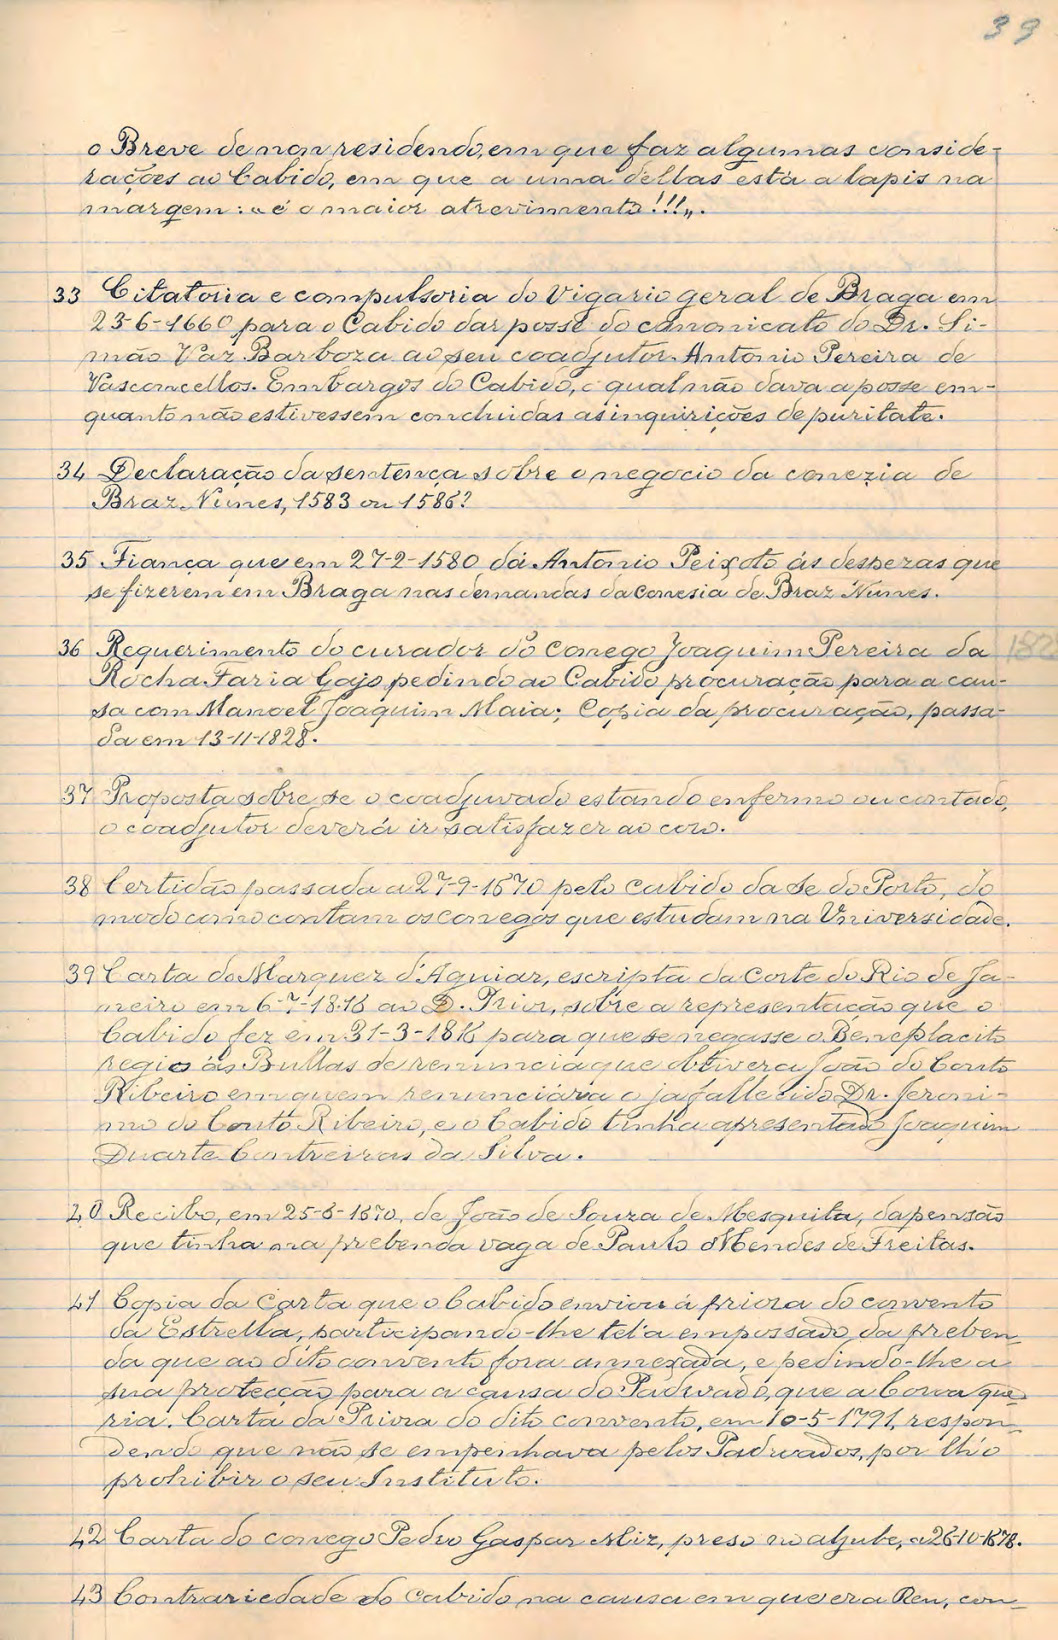 39
o Breve de non residendo, em que faz algumas conside-
rações ao Cabido, em que a uma dellas está a lapis na
margem: «é o maior atrevimento!!!».
33 Citatoria e compulsoria do Vigario geral de Braga em
23-6-1660 para o Cabido dar posse do canonicato do Dr. Si-
mão Vaz Barboza ao seu coadjutor Antonio Pereira de
Vasconcellos. Embargos do Cabido, o qual não dava a posse em-
quanto não estivessem concluidas as inquirições de puritate.
34 Declaração da sentença sobre o negocio da conezia de
Braz Nunes, 1583 ou 1586?
35 Fiança que em 27-2-1580 dá Antonio Peixoto ás despezas que
se fizerem em Braga nas demandas da Conesia de Braz Nunes.
36 Requerimento do curador do Conego Joaquim Pereira da
Rocha Faria Gajo pedindo ao Cabido procuração para a cau-
sa com Manoel Joaquim Maia; Copia da procuração, passa-
da em 13-11-1828.
37 Proposta sobre se o coadjuvado estando enfermo ou contado,
o coadjutor deverá ir satisfazer ao coro.
38 Certidão passada a 27-9-1670 pelo cabido da Se do Porto, do
modo como contam os conegos que estudam na Universidade.
39 Carta do Marquez d'Aguiar, escripta da Corte do Rio de Ja-
neiro em 6-7-1816 ao D. Prior, sobre a representação que o
Cabido fez em 31-3-1816 para que se negasse o Beneplacito
regio ás Bullas de renuncia que obtivera João do Couto
Ribeiro em quem renunciára o ja fallecido Dr. Jeroni-
mo do Couto Ribeiro, e o Cabido tinha apresentado Joaquim
Duarte Contreiras da Silva.
40 Recibo, em 25-6-1670, de João de Souza de Mesquita, da pensão
que tinha na prebenda vaga de Paulo Mendes de Freitas.
41 Copia da Carta que o Cabido enviou á priora do convento
da Estrella, participando-lhe tel'a empossado da preben-
da que ao dito convento fora annexada, e pedindo-lhe a
sua protecção para a causa do Padroado, que a Coroa que-
ria. Carta da Priora do dito convento, em 10-5-1791, respon-
dendo que não se empenhava pelos Padroados, por lh'o
prohibir o seu Instituto.
42 Carta do conego Pedro Gaspar Miz, preso no aljube, a 26-10-1678.
43 Contrariedade do Cabido na causa em que era Reu, con-